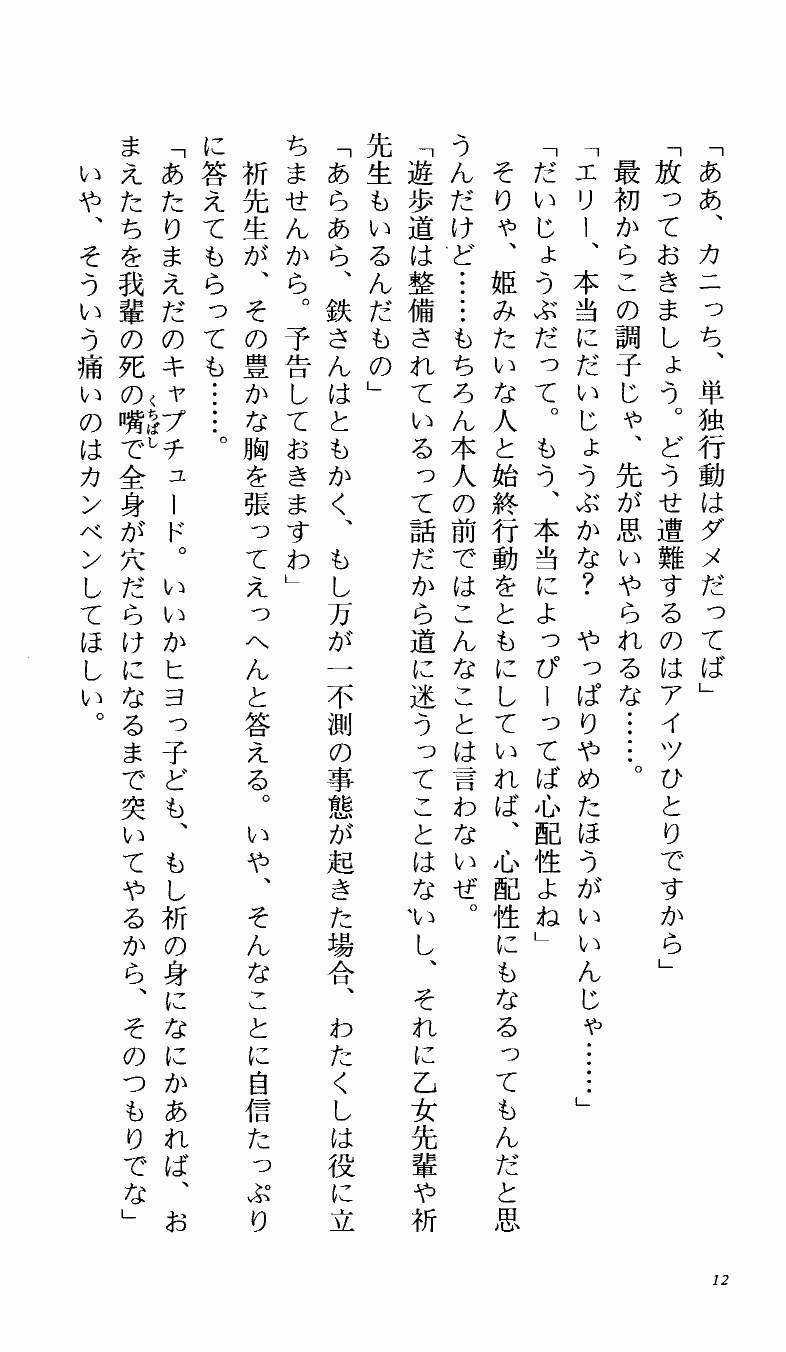 「ああ、カニっち、単独行動はダメだってば」
「放っておきましょう。どうせ遭難するのはアイツひとりですから」
最初からこの調子じゃ、先が思いやられるな……。
「エリー、本当にだいじょうぶかな？　やっぱりやめたほうがいいんじゃ……」
「だいじょうぶだって。もう、本当によっぴーってば心配性よね」
そりゃ、姫みたいな人と始終行動をともにしていれば、心配性にもなるってもんだと思
うんだけど……もちろん本人の前ではこんなことは言わないぜ。
「遊歩道は整備されているって話だから道に迷うってことはないし、それに乙女先輩や祈
先生もいるんだもの」
「あらあら、鉄さんはともかく、もし万が一不測の事態が起きた場合、わたくしは役に立
ちませんから。予告しておきますわ」
祈先生が、その豊かな胸を張ってえっへんと答える。いや、そんなことに自信たっぷり
に答えてもらっても……。
「あたりまえだのキャプチュード。いいかヒヨっ子ども、もし祈の身になにかあれば、お
まえたちを我輩の死の嘴くちばしで全身が穴だらけになるまで突いてやるから、そのつもりでな」
いや、そういう痛いのはカンベンしてほしい。
12